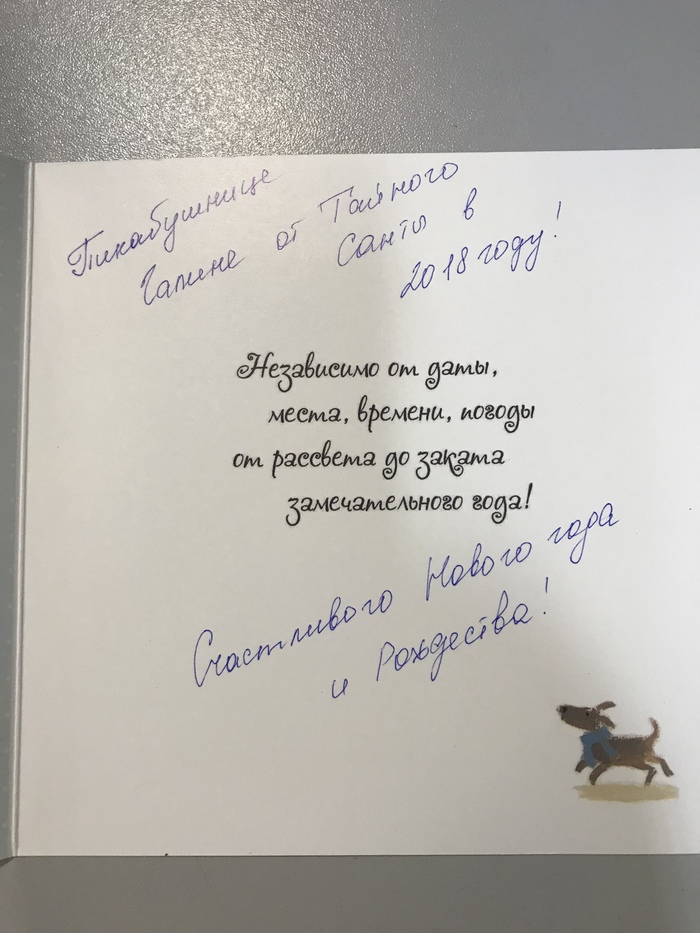 Пикабушнице
Галине от Тайного
Санты в
2018 году!
Независимо от даты,
места, времени, погоды
от рассвета до заката
замечательного года!
Счастливого Нового года
и Рождества!